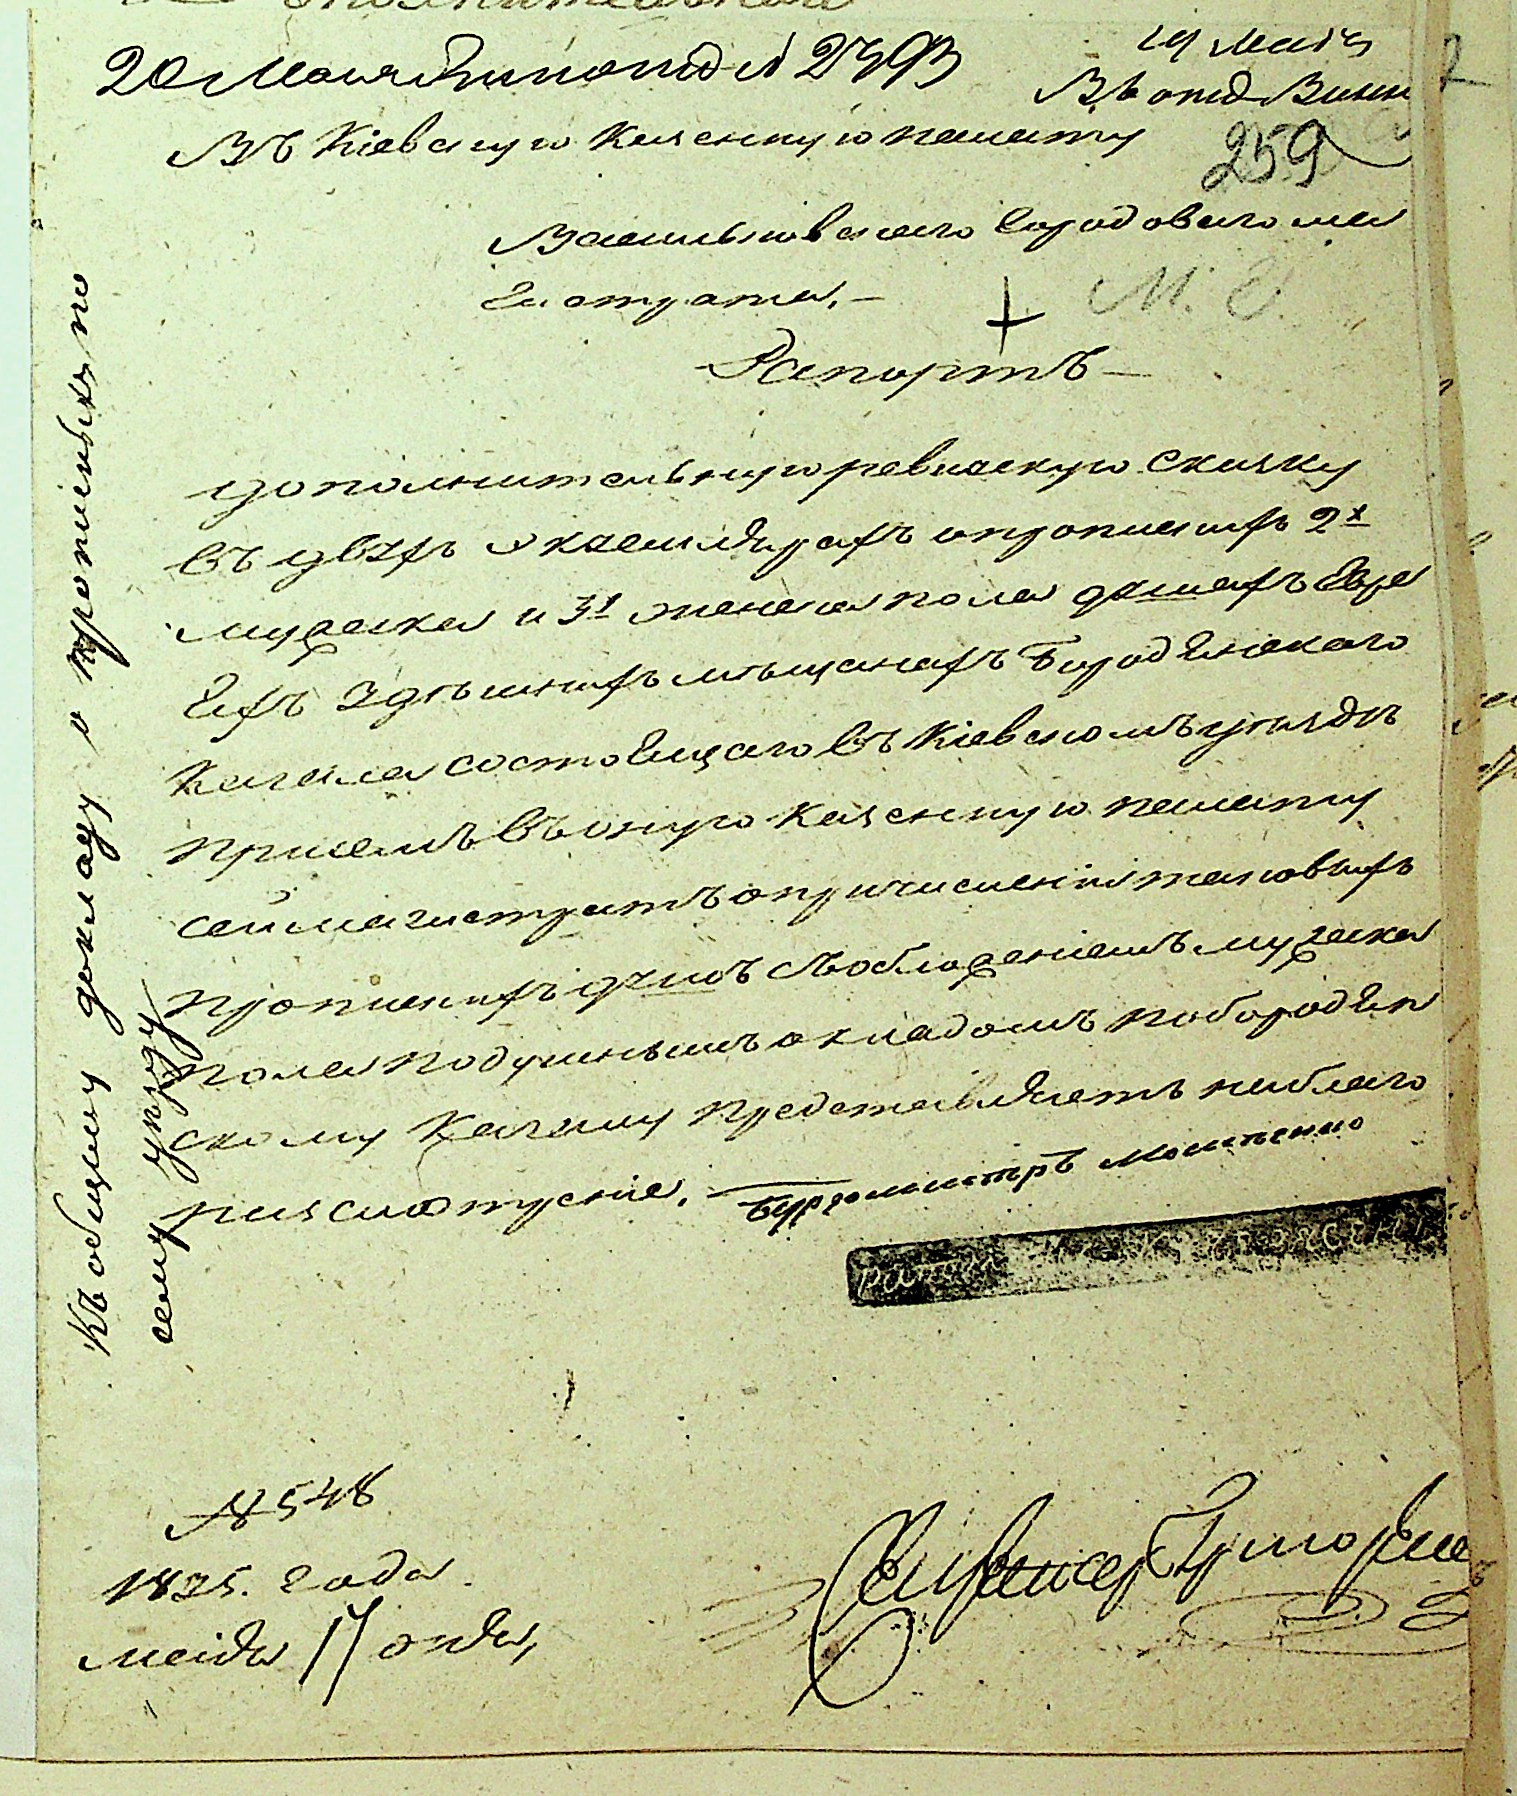 20 Мая № 2393
19 Мая
Въ отд
Въ Кіевскую Казенную палату
259
Васильковскаго Городоваго ма
гистрата. –
М. Г.
Рапортъ –
дополнительную ревизскую сказку
въ двухъ экземплярахъ о прописныхъ 2х
мужеска и 3х женска пола душахъ Евре
яхъ здѣшнихъ мѣщанахъ Бородянскаго
Кагала состоящаго въ Кіевскомъ уѣздѣ
при семъ въ оную Казенную палату
сей магистратъ о причисленіи таковыхъ
прописныхъ душъ съ обложеніемъ мужеска
пола подушнымъ окладомъ по Бородян
скому Кагалу представляетъ на благо
разсмотреніе. Бургомистръ
Къ общему докладу о прописныхъ по
сему уезду
№ 548
1835. года
маія 17 дня,
Секретарь Григорьев